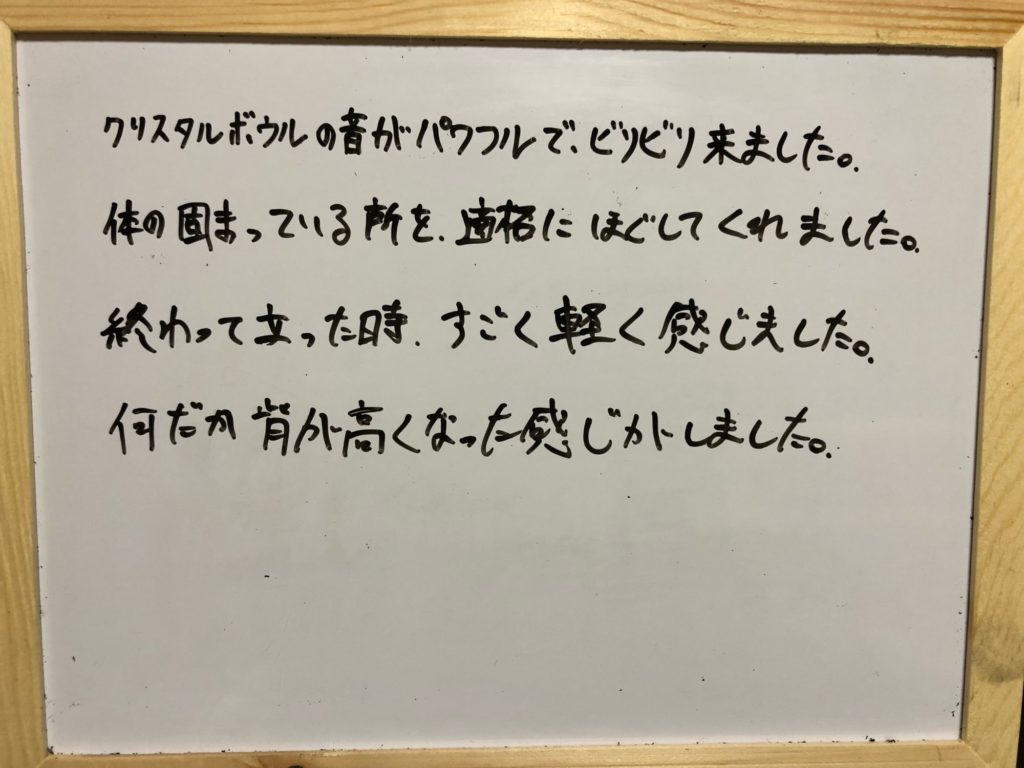 クリスタルボウルの音がパワフルで、ビリビリ来ました。
体の固まっている所を、適格にほぐしてくれました。
終わって立った時、すごく軽く感じました。
何だか背が高くなった感じがしました。